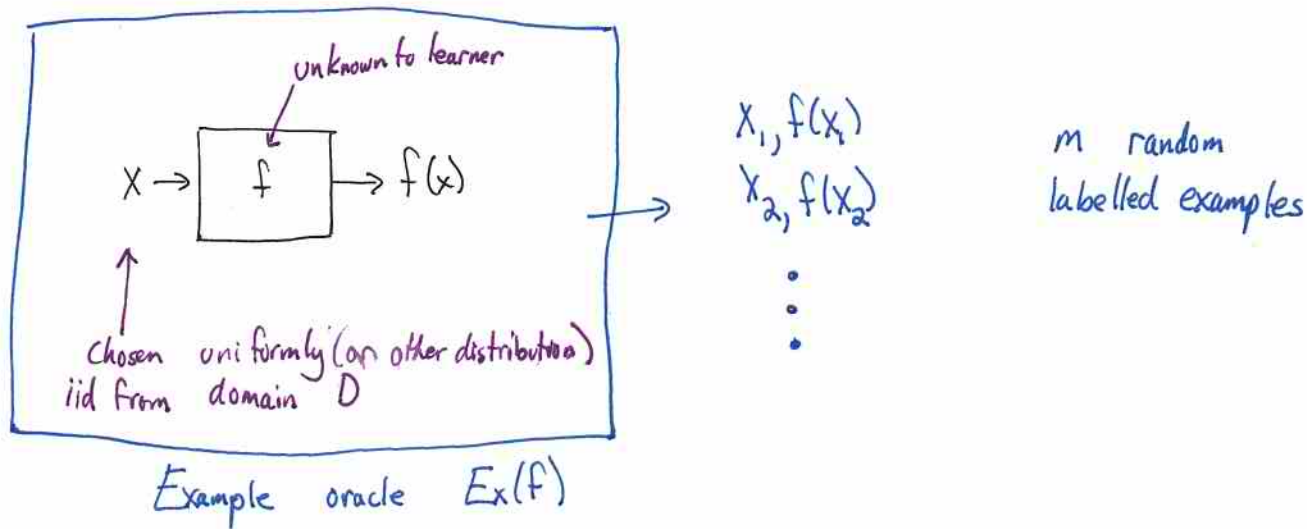 unknown to learner
x → f → f(x)
chosen uniformly (or other distribution)
iid from domain D
Example oracle Ex(f)
x₁, f(x₁)
x₂, f(x₂)
⋮
m random
labelled examples